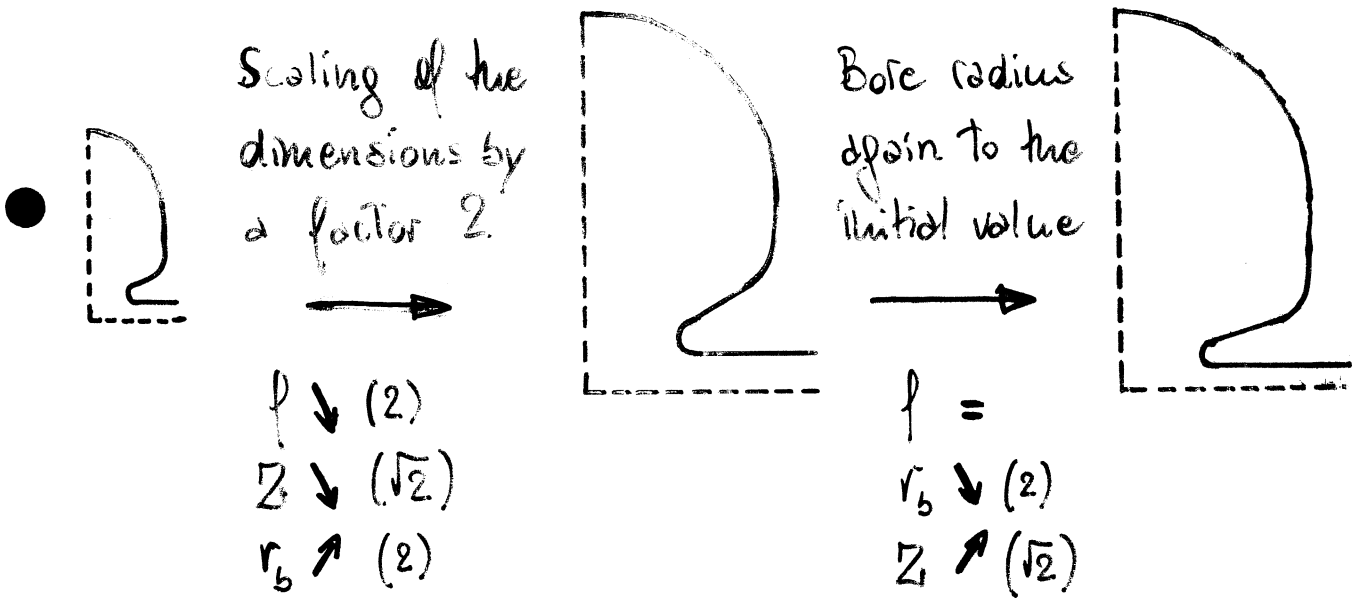 Scaling of the
dimensions by
a factor 2
f ↘ (2)
Z ↘ (√2)
r_b ↗ (2)
Bore radius
again to the
initial value
f =
r_b ↘ (2)
Z ↗ (√2)